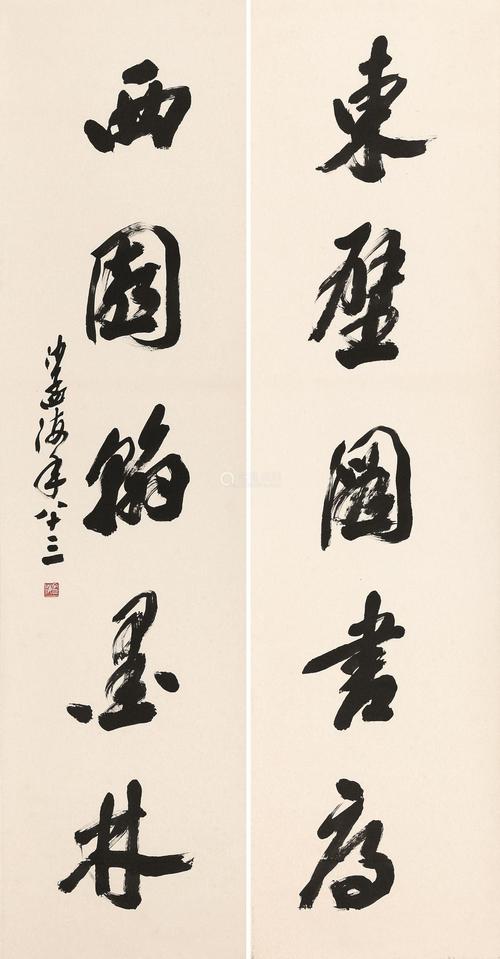 東壁圖書府
西園翰墨林
沙孟海年八十三